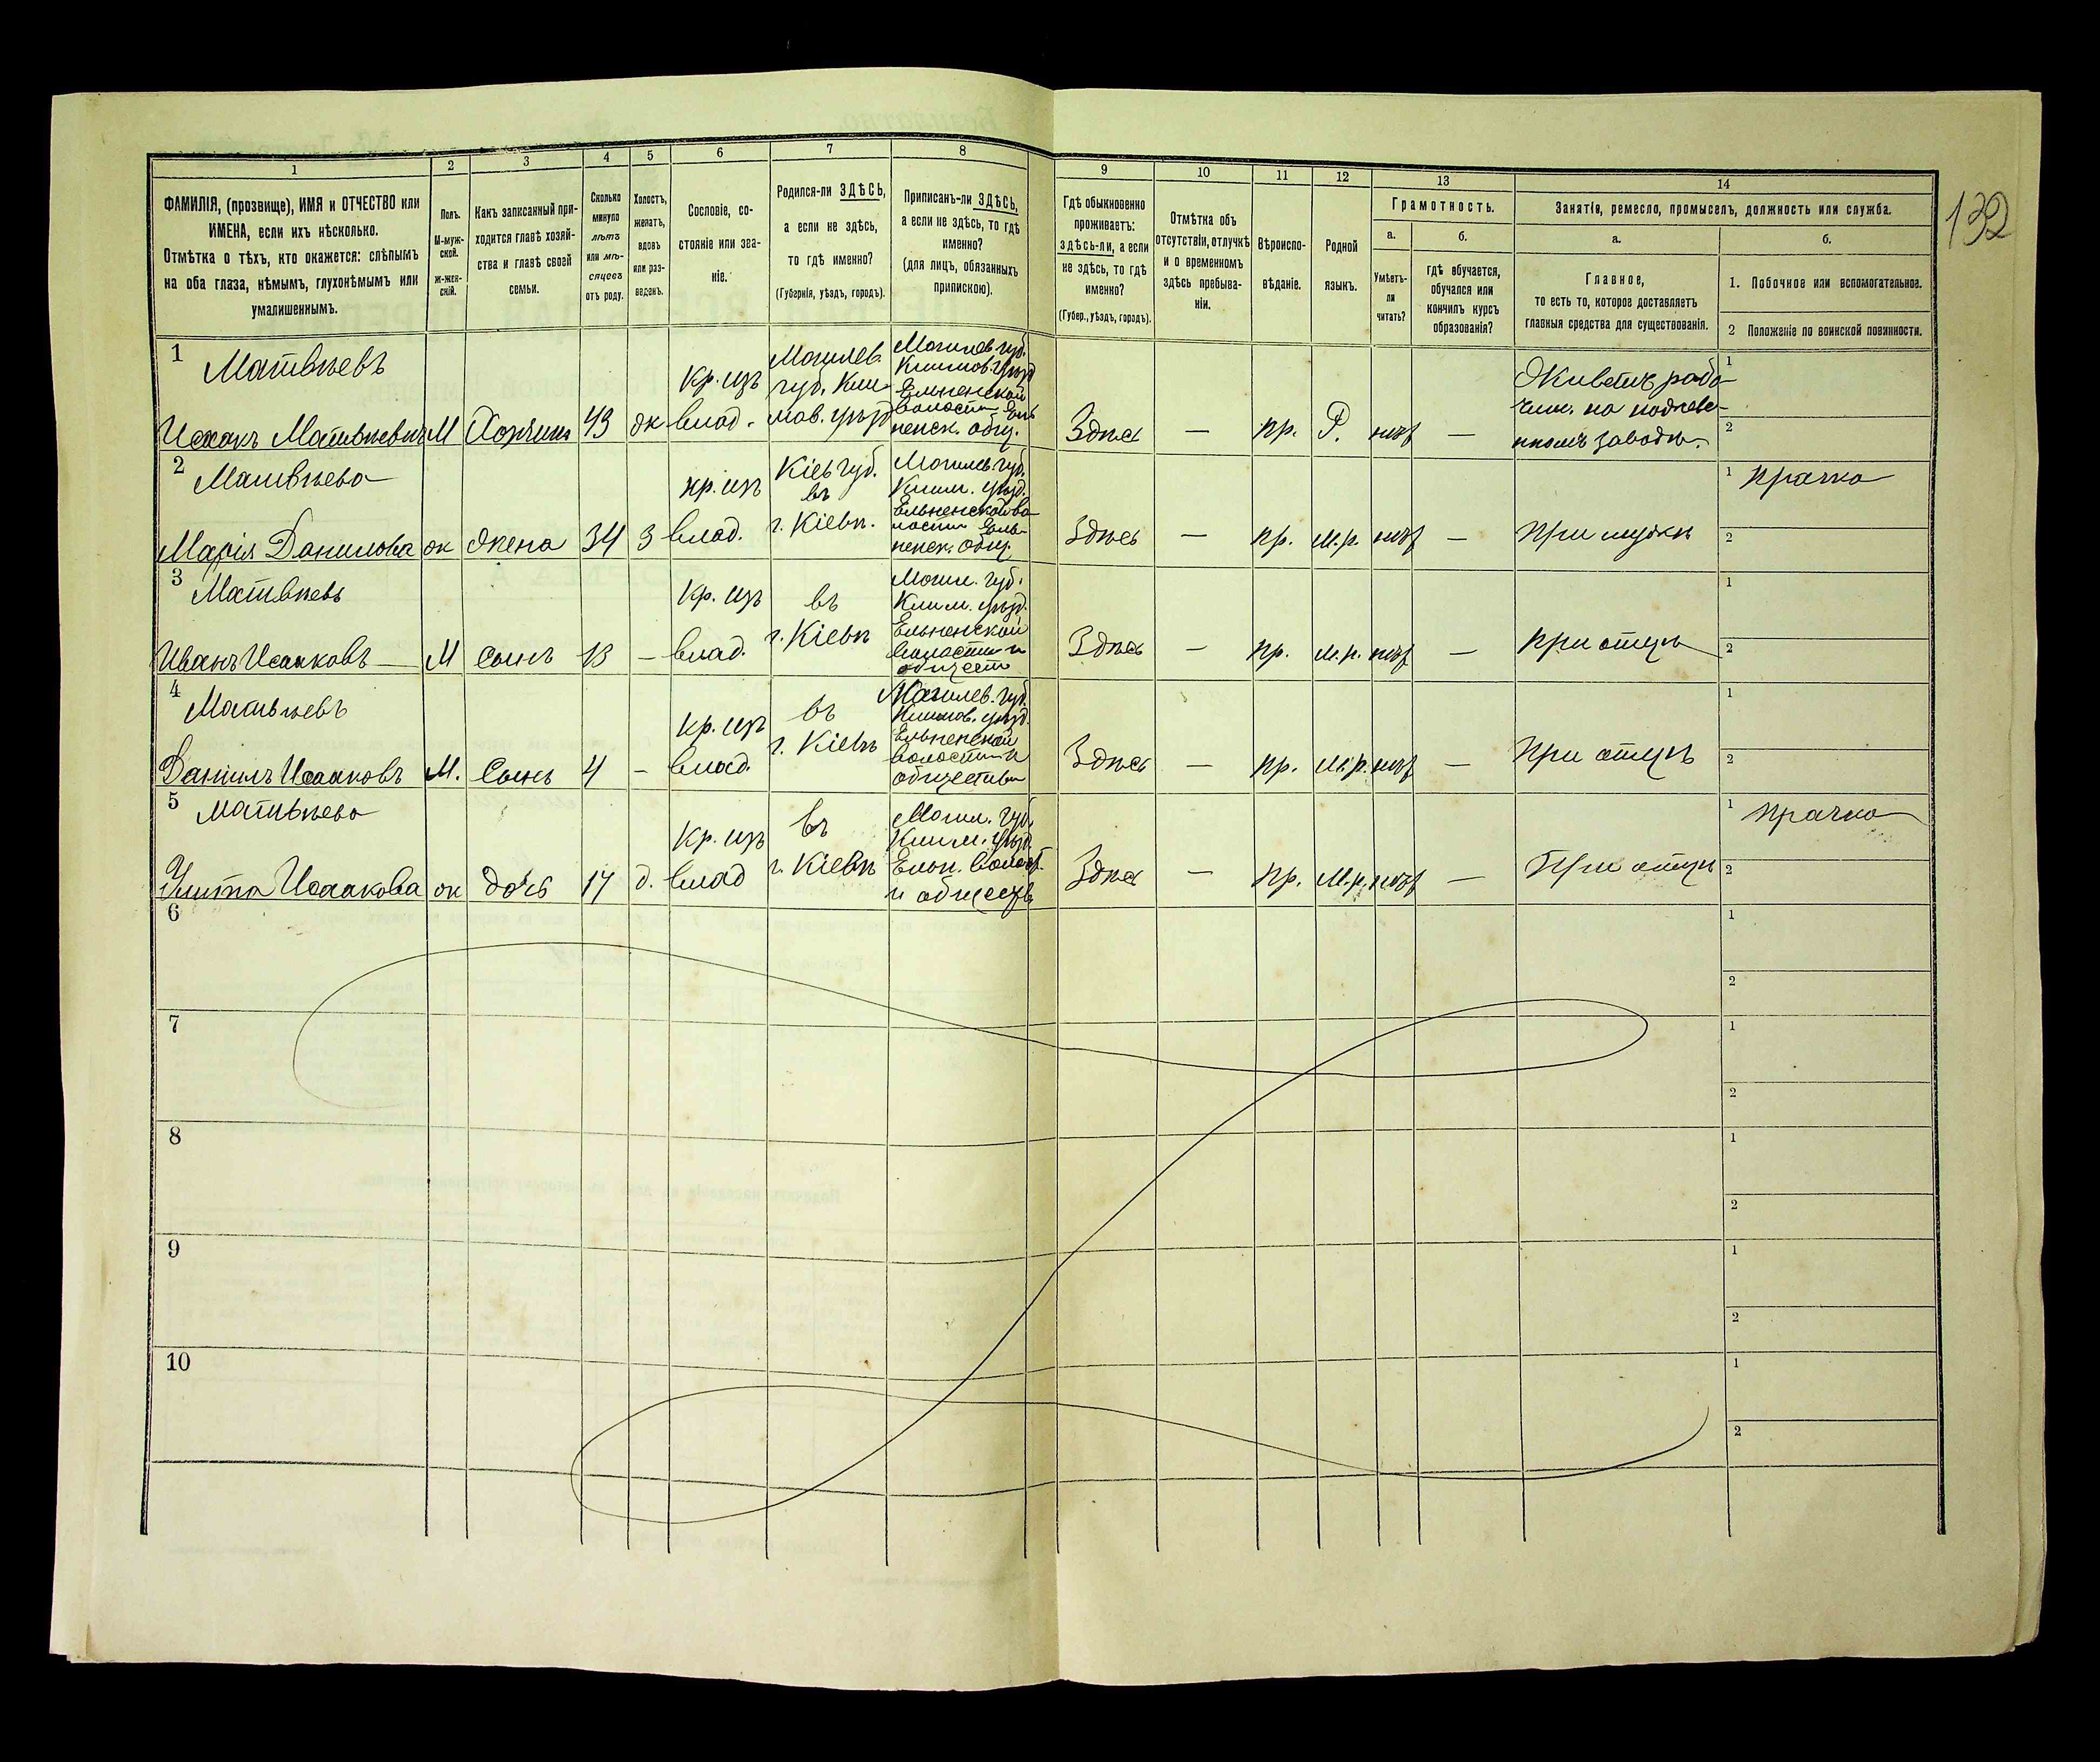 132
1 2 3 4 5 6 7 8 9 10 11 12 13 14
ФАМИЛІЯ, (прозвище), ИМЯ и ОТЧЕСТВО или
ИМЕНА, если ихъ нѣсколько.
Отмѣтка о тѣхъ, кто окажется: слѣпымъ
на оба глаза, нѣмымъ, глухонѣмымъ или
умалишеннымъ.
Полъ.
М-муж-
ской.
ж-жен-
скій.
Какъ записанный при-
ходится главѣ хозяй-
ства и главѣ своей
семьи.
Сколько
минуло
лѣтъ
или мѣ-
сяцевъ
отъ роду.
Холостъ,
женатъ,
вдовъ
или раз-
веденъ.
Сословіе, со-
стояніе или зва-
ніе.
Родился-ли ЗДѢСЬ,
а если не здѣсь,
то гдѣ именно?
(Губернія, уѣздъ, городъ).
Приписанъ-ли ЗДѢСЬ,
а если не здѣсь, то гдѣ
именно?
(для лицъ, обязанныхъ
припискою).
Гдѣ обыкновенно
проживаетъ:
здѣсь-ли, а если
не здѣсь, то гдѣ
именно?
(Губер., уѣздъ, городъ).
Отмѣтка объ
отсутствіи, отлучкѣ
и о временномъ
здѣсь пребыва-
ніи.
Вѣроиспо-
вѣданіе.
Родной
языкъ.
Грамотность.
а.
Умѣетъ-
ли
читать?
б.
гдѣ обучается,
обучался или
кончилъ курсъ
образованія?
Занятія, ремесло, промыселъ, должность или служба.
а.
Главное,
то есть то, которое доставляетъ
главныя средства для существованія.
б.
1. Побочное или вспомогательное.
2 Положеніе по воинской повинности.
1
Матвѣевъ
Исаакъ Матвѣевичъ
М
Хозяинъ
43
ж
кр. изъ
влад.
Могилев.
губ. Кли-
мов. уѣзд
Могилев. губ.
Климов. уѣзд
Ельненской
волости Ель
ненск. общ.
Здѣсь
—
пр.
Р.
нѣт
—
Живетъ рабо
чим. на
заводѣ.
1
2
2
Матвѣева
Марія Данилова
ж
жена
34
З
кр. изъ
влад.
Кіев губ.
въ
г. Кіевѣ.
Могилев. губ.
Клим. уѣзд.
Ельненской во
лости Ель-
ненск. общ.
Здѣсь
—
пр.
м.р.
нѣт
—
при мужѣ
1 прачка
2
3
Матвѣевъ
Иванъ Исааковъ
М
сынъ
13
—
кр. изъ
влад.
въ
г. Кіевѣ
Могил. губ.
Клим. уѣзд.
Ельненской
волости и
общест
Здѣсь
—
пр.
м.р.
нѣт
—
при отцѣ
1
2
4
Матвѣевъ
Даніилъ Исааковъ
М.
Сынъ
4
—
кр. изъ
влад.
въ
г. Кіевѣ
Могилев. губ.
Климов. уѣзд.
Ельненской
волости и
общества
Здѣсь
—
пр.
м.р.
нѣт
—
при отцѣ
1
2
5
Матвѣева
Улита Исаакова
ж
дочь
17
д.
кр. изъ
влад
въ
г. Кіевѣ
Могил. губ.
Клим. уѣзд.
Ельн. волост.
и обществ
Здѣсь
—
пр.
м.р.
нѣт
—
При отцѣ
1 прачка
2
6
1
2
7
1
2
8
1
2
9
1
2
10
1
2